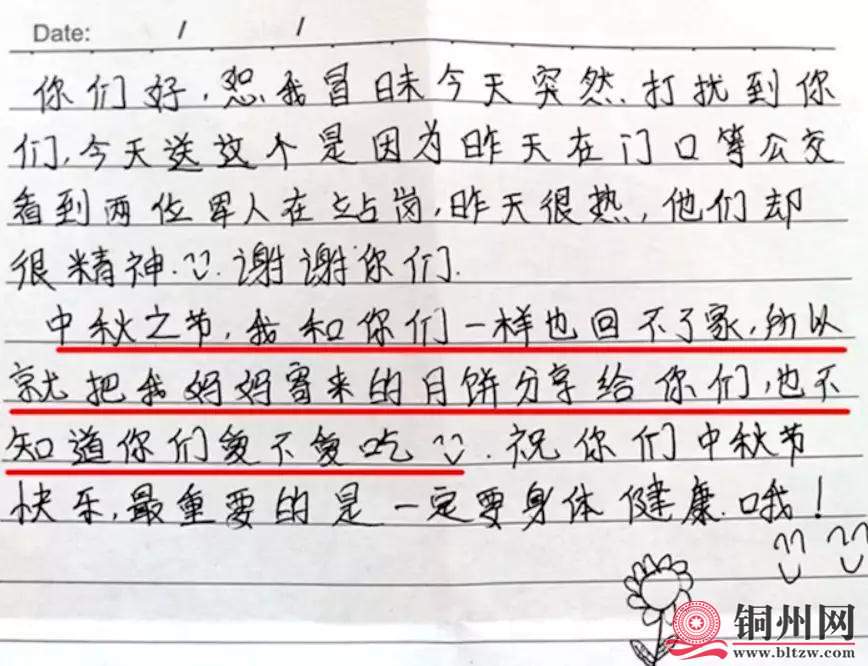 Date: / /
你们好，恕我冒昧今天突然打扰到你
们，今天送这个是因为昨天在门口等公交
看到两位军人在站岗，昨天很热，他们却
很精神.谢谢你们.
中秋之节，我和你们一样也回不了家，所以
就把我妈妈寄来的月饼分享给你们，也不
知道你们爱不爱吃.祝你们中秋节
快乐，最重要的是一定要身体健康哦！
铜州网
www.bltzw.com